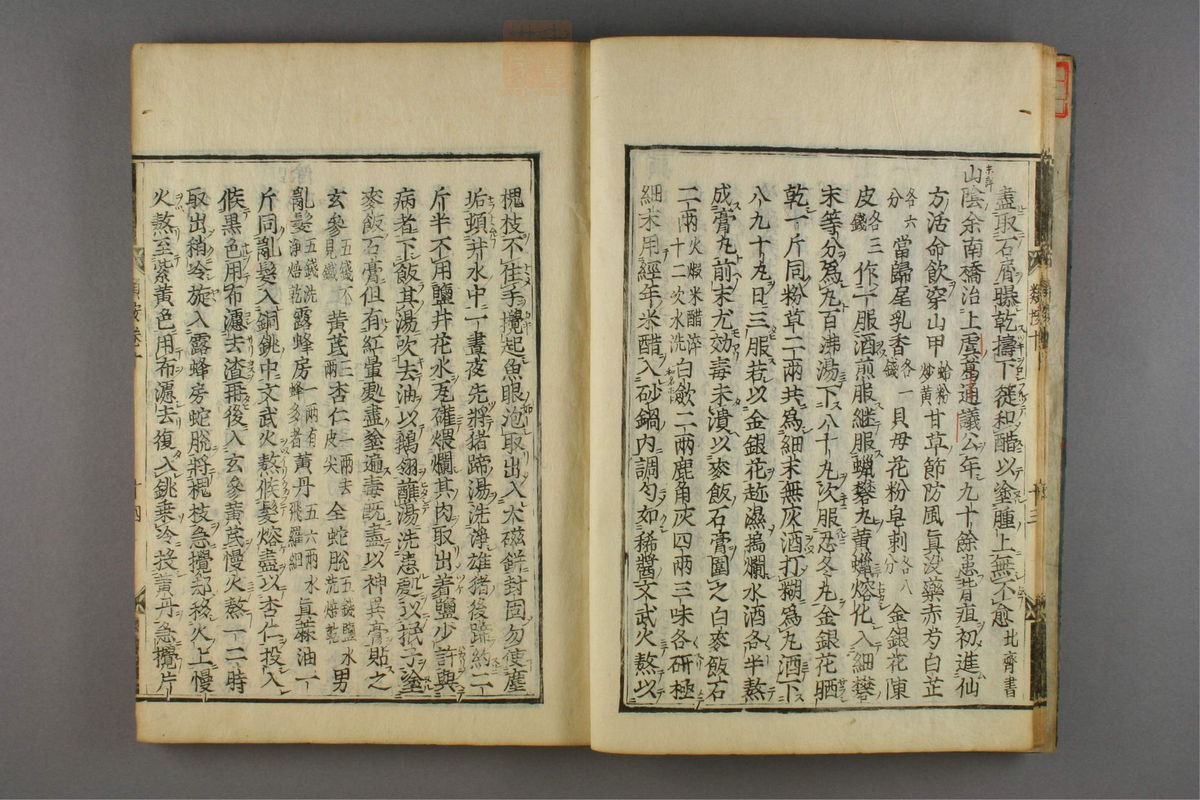 盡取石屑曝乾擣下篵和醋以塗腫上無不愈北齊書
山陰余南橋治上虞葛通議公年九十餘患背疽初進仙
方活命飲穿山甲蛤粉炒黄甘草節防風真没藥赤芍白芷
各六分當歸尾乳香各一錢貝母花粉皂刺各八分金銀花陳
皮各三錢作一服酒煎服継服蠟礬丸黄蠟熔化入細礬
末等分為丸百沸湯下八十九次服忍冬丸金銀花晒
乾一斤同粉草二兩共為細末無灰酒打糊為丸酒下
八九十丸日三服若以金銀花趂濕搗爛水酒各半熬
成膏丸前末尤効毒未潰以麥飯石膏圍之白麥飯石
二兩火煅米醋淬十二次水洗白歛二兩鹿角灰四兩三味各研極
細末用經年米醋入砂鍋内調勻如稀醬文武火熬以
槐枝不住手攪起魚眼泡取出入大磁鉼封固勿使塵
垢頓井水中一晝夜先將猪蹄湯洗淨雄猪後蹄約二
斤半不用鹽井花水瓦確煨爛其肉取出着鹽少許與
病者下飯其湯吹去油以鵝翎蘸湯洗患處以抿子塗
麥飯石膏但有紅暈處盡塗遍毒既盡以神異膏貼之
玄參五錢不見鐵黄芪三兩杏仁一兩去皮尖全蛇脫五錢鹽水洗焙乾男
亂髪五錢洗淨焙乾露蜂房一兩有蜂多者黄丹五六兩水飛羅細真蔴油一
斤同亂髪入銅銚中文武火熬候髪熔盡以杏仁投入
候黒色用布濾去渣再後入玄參黄芪慢火熬一二時
取出稍冷旋入露蜂房蛇脫將槐枝急攪却移火上慢
火熬至紫黄色用布濾去復入銚乗冷投黄丹急攪片